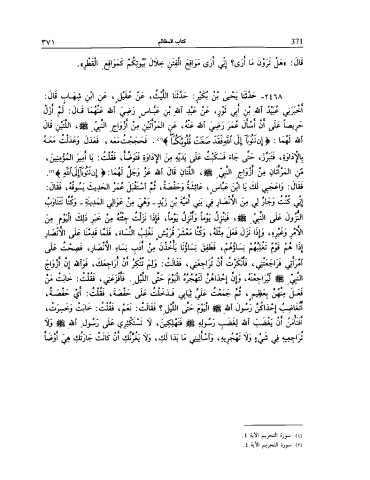 371 كتاب المظالم ٣٧١
قَالَ: «هَلْ تَرَوْنَ مَا أَرَى؟ إِنِّي أَرَى مَوَاقِعَ الْفِتَنِ خِلَالَ بُيُوتِكُمْ كَمَوَاقِعِ الْقَطْرِ».
٢٤٦٨- حَدَّثَنَا يَحْيَى بْنُ بُكَيْرٍ: حَدَّثَنَا اللَّيْثُ، عَنْ عُقَيْلٍ، عَنِ ابْنِ شِهَابٍ قَالَ:
أَخْبَرَنِي عُبَيْدُ اللهِ بْنُ أَبِي ثَوْرٍ، عَنْ عَبْدِ اللهِ بْنِ عَبَّاسٍ رَضِيَ اللهُ عَنْهُمَا قَالَ: لَمْ أَزَلْ
حَرِيصاً عَلَى أَنْ أَسْأَلَ عُمَرَ رَضِيَ اللهُ عَنْهُ، عَنِ الْمَرْأَتَيْنِ مِنْ أَزْوَاجِ النَّبِيِّ ﷺ، اللَّتَيْنِ قَالَ
اللهُ لَهُمَا: ﴿إِن تَتُوبَا إِلَى اللَّهِ فَقَدْ صَغَتْ قُلُوبُكُمَا﴾(١). فَحَجَجْتُ مَعَهُ، فَعَدَلَ وَعَدَلْتُ مَعَهُ
بِالْإِدَاوَةِ، فَتَبَرَّزَ، حَتَّى جَاءَ فَسَكَبْتُ عَلَى يَدَيْهِ مِنَ الْإِدَاوَةِ فَتَوَضَّأَ، فَقُلْتُ: يَا أَمِيرَ الْمُؤْمِنِينَ،
مَنِ الْمَرْأَتَانِ مِنْ أَزْوَاجِ النَّبِيِّ ﷺ، اللَّتَانِ قَالَ اللهُ عَزَّ وَجَلَّ لَهُمَا: ﴿إِن تَتُوبَا إِلَى اللَّهِ﴾(٢).
فَقَالَ: وَاعَجَبِي لَكَ يَا ابْنَ عَبَّاسٍ، عَائِشَةُ وَحَفْصَةُ، ثُمَّ اسْتَقْبَلَ عُمَرُ الْحَدِيثَ يَسُوقُهُ، فَقَالَ:
إِنِّي كُنْتُ وَجَارٌ لِي مِنَ الْأَنْصَارِ فِي بَنِي أُمَيَّةَ بْنِ زَيْدٍ، وَهْيَ مِنْ عَوَالِي الْمَدِينَةِ، وَكُنَّا نَتَنَاوَبُ
النُّزُولَ عَلَى النَّبِيِّ ﷺ، فَيَنْزِلُ يَوْماً وَأَنْزِلُ يَوْماً، فَإِذَا نَزَلْتُ جِئْتُهُ مِنْ خَبَرِ ذَلِكَ الْيَوْمِ مِنَ
الْأَمْرِ وَغَيْرِهِ، وَإِذَا نَزَلَ فَعَلَ مِثْلَهُ، وَكُنَّا مَعْشَرَ قُرَيْشٍ نَغْلِبُ النِّسَاءَ، فَلَمَّا قَدِمْنَا عَلَى الْأَنْصَارِ
إِذَا هُمْ قَوْمٌ تَغْلِبُهُمْ نِسَاؤُهُمْ، فَطَفِقَ نِسَاؤُنَا يَأْخُذْنَ مِنْ أَدَبِ نِسَاءِ الْأَنْصَارِ، فَصِحْتُ عَلَى
امْرَأَتِي فَرَاجَعَتْنِي، فَأَنْكَرْتُ أَنْ تُرَاجِعَنِي، فَقَالَتْ: وَلِمَ تُنْكِرُ أَنْ أُرَاجِعَكَ، فَوَاللهِ إِنَّ أَزْوَاجَ
النَّبِيِّ ﷺ لَيُرَاجِعْنَهُ، وَإِنَّ إِحْدَاهُنَّ لَتَهْجُرُهُ الْيَوْمَ حَتَّى اللَّيْلِ. فَأَفْزَعَتْنِي، فَقُلْتُ: خَابَتْ مَنْ
فَعَلَ مِنْهُنَّ بِعَظِيمٍ، ثُمَّ جَمَعْتُ عَلَيَّ ثِيَابِي فَدَخَلْتُ عَلَى حَفْصَةَ، فَقُلْتُ: أَيْ حَفْصَةُ،
أَتُغَاضِبُ إِحْدَاكُنَّ رَسُولَ اللهِ ﷺ الْيَوْمَ حَتَّى اللَّيْلِ؟ فَقَالَتْ: نَعَمْ، فَقُلْتُ: خَابَتْ وَخَسِرَتْ،
أَفَتَأْمَنُ أَنْ يَغْضَبَ اللهُ لِغَضَبِ رَسُولِهِ ﷺ فَتَهْلِكِينَ، لَا تَسْتَكْثِرِي عَلَى رَسُولِ اللهِ ﷺ وَلَا
تُرَاجِعِيهِ فِي شَيْءٍ وَلَا تَهْجُرِيهِ، وَاسْأَلِينِي مَا بَدَا لَكِ، وَلَا يَغُرَّنَّكِ أَنْ كَانَتْ جَارَتُكِ هِيَ أَوْضَأَ
(١) سورة التحريم الآية ٤.
(٢) سورة التحريم الآية ٤.